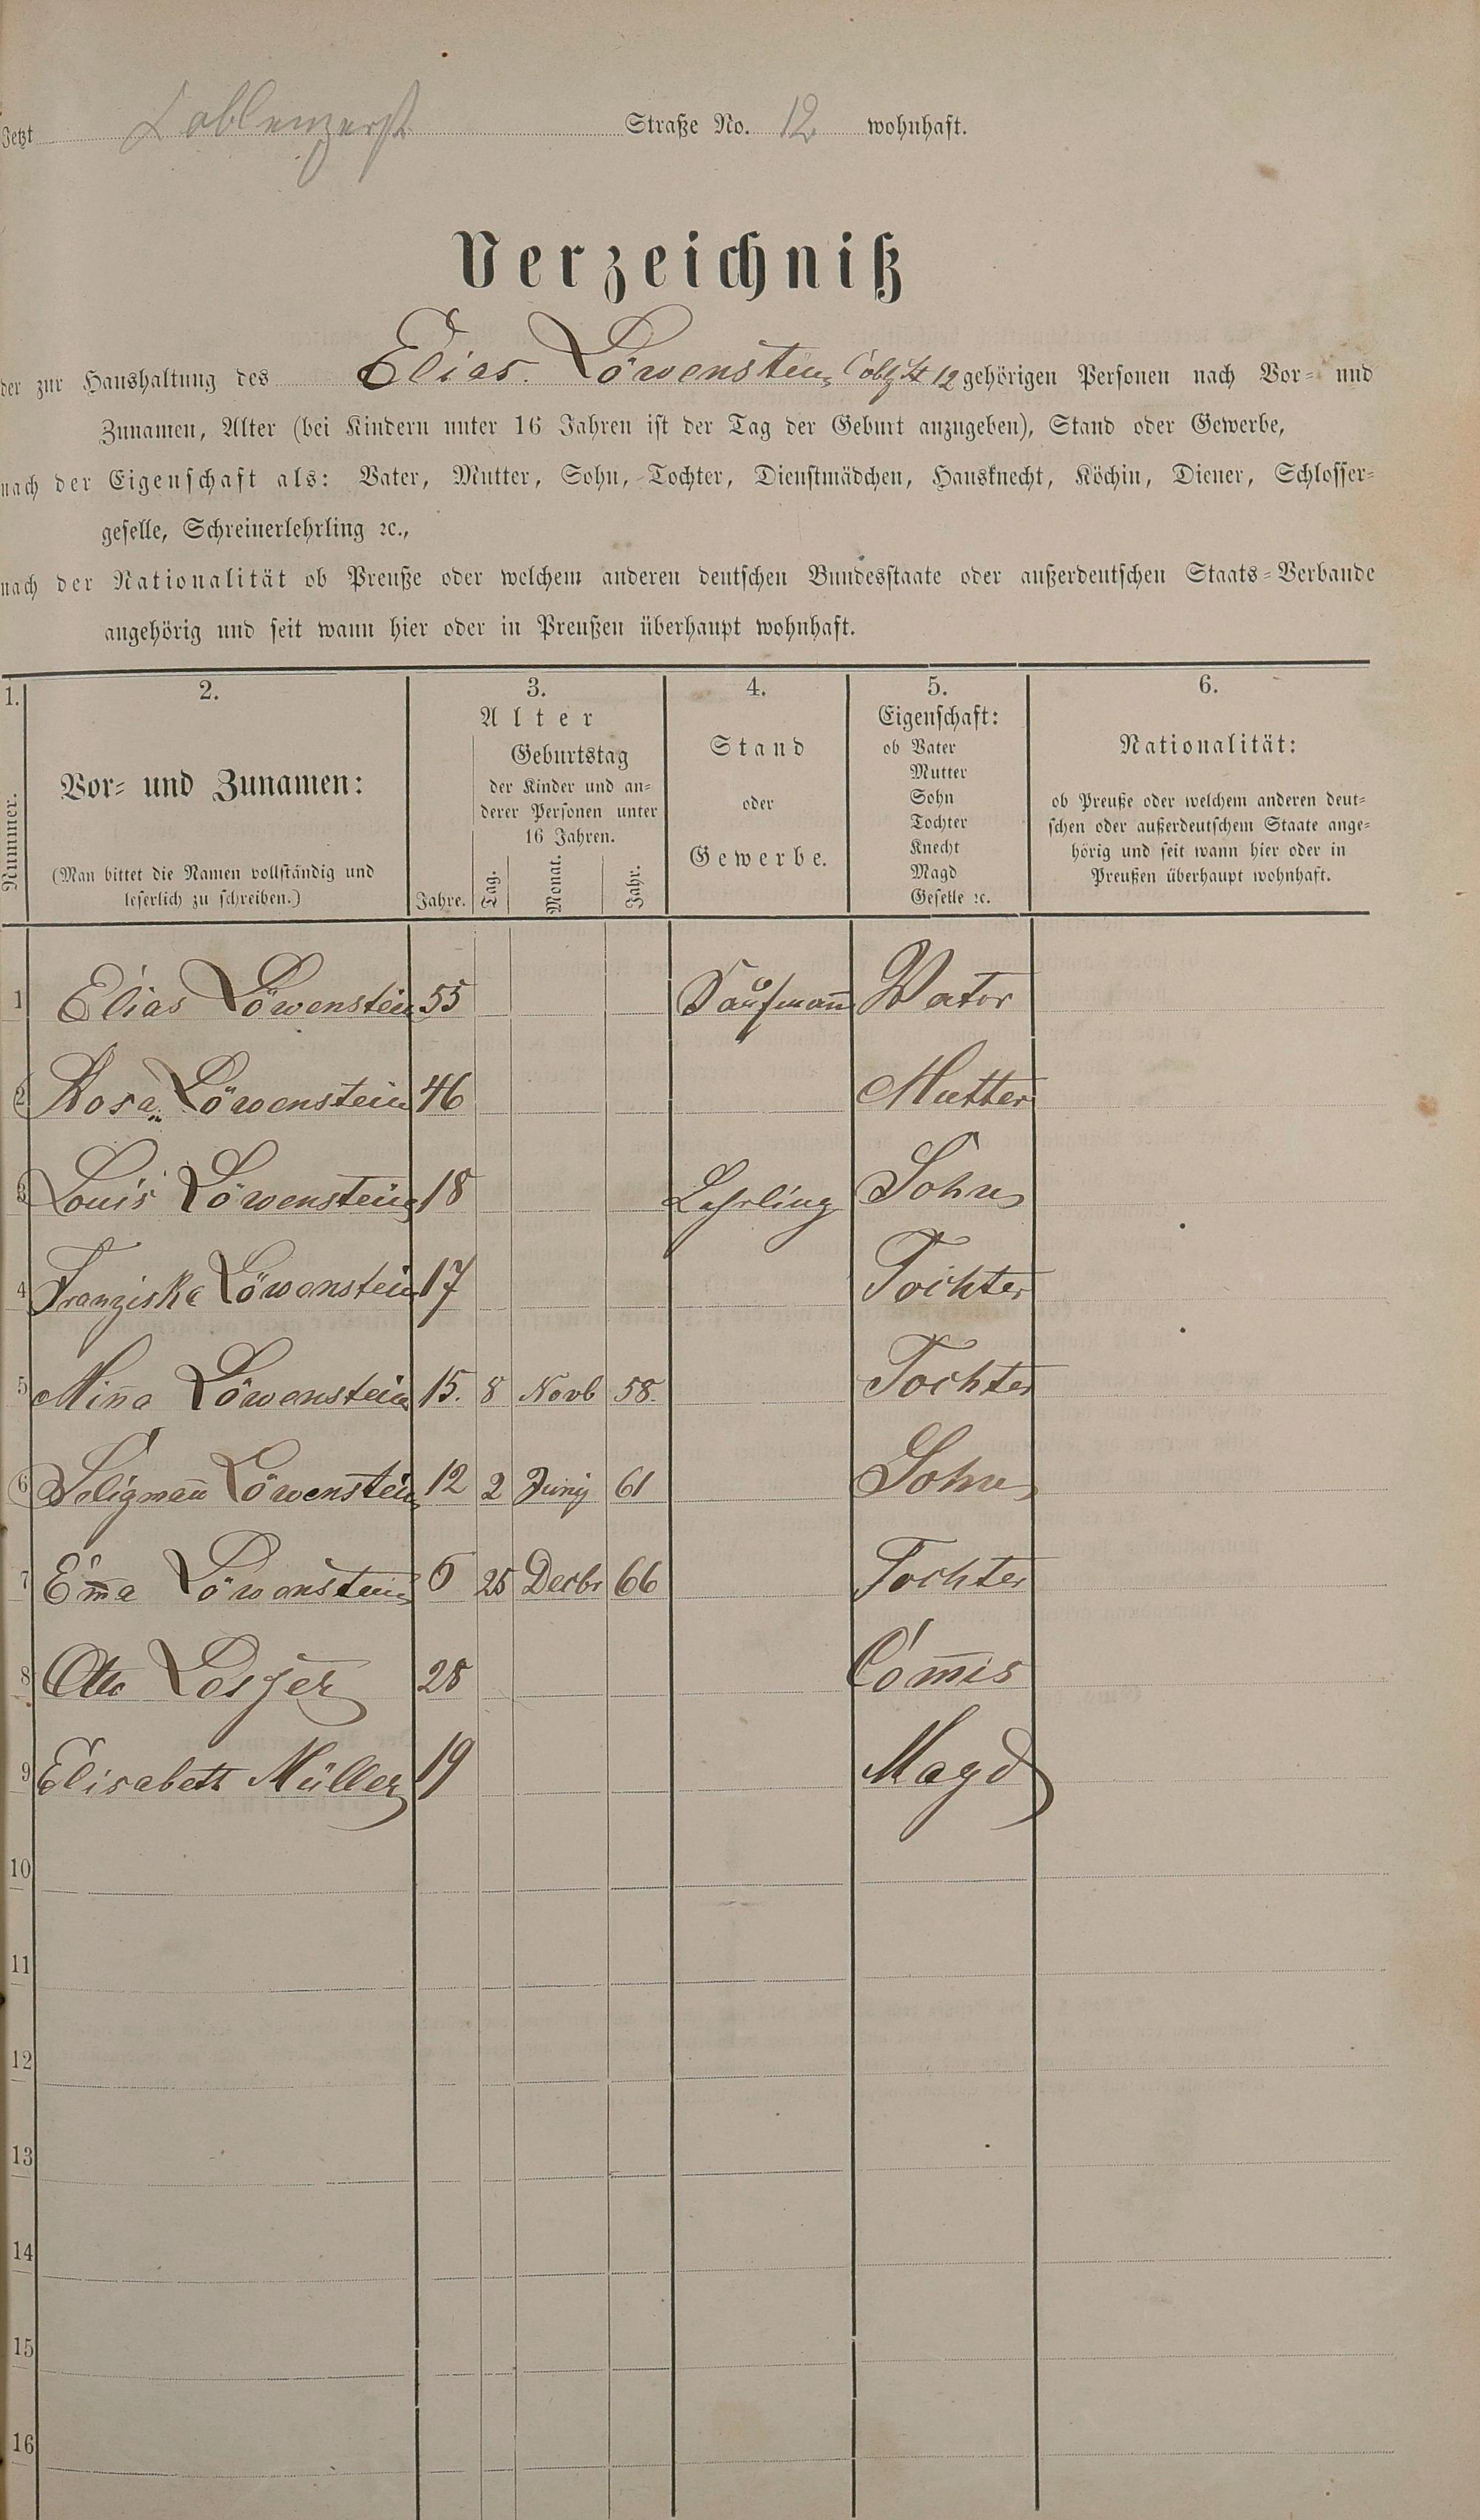 Jetzt Coblenzerst Straße No. 12 wohnhaft.
Verzeichniß
der zur Haushaltung des Elias Löwenstein Coblz St 12 gehörigen Personen nach Vor- und
Zunamen, Alter (bei Kindern unter 16 Jahren ist der Tag der Geburt anzugeben), Stand oder Gewerbe,
nach der Eigenschaft als: Vater, Mutter, Sohn, Tochter, Dienstmädchen, Hausknecht, Köchin, Diener, Schlosser-
geselle, Schreinerlehrling ꝛc.,
nach der Nationalität ob Preuße oder welchem anderen deutschen Bundesstaate oder außerdeutschen Staats-Verbande
angehörig und seit wann hier oder in Preußen überhaupt wohnhaft.
1. 2. 3. 4. 5. 6.
Nummer.
Vor- und Zunamen:
(Man bittet die Namen vollständig und
leserlich zu schreiben.)
Alter
Jahre.
Geburtstag
der Kinder und an-
derer Personen unter
16 Jahren.
Tag. Monat. Jahr.
Stand
oder
Gewerbe.
Eigenschaft:
ob Vater
Mutter
Sohn
Tochter
Knecht
Magd
Geselle ꝛc.
Nationalität:
ob Preuße oder welchem anderen deut-
schen oder außerdeutschem Staate ange-
hörig und seit wann hier oder in
Preußen überhaupt wohnhaft.
1 Elias Löwenstein 55 Kaufmann̄ Vater
2 Rosa Löwenstein 46 Mutter
3 Louis Löwenstein 18 Lehrling Sohn
4 Franziska Löwenstein 17 Tochter
5 Min̄a Löwenstein 15. 8 Novb 58. Tochter
6 Seligman̄ Löwenstein 12 2 Juny 61 Sohn
7 Em̄a Löwenstein 6 25 Decbr 66 Tochter
8 Otto 28 Com̄is
9 Elisabett Müller 19 Magd
10
11
12
13
14
15
16